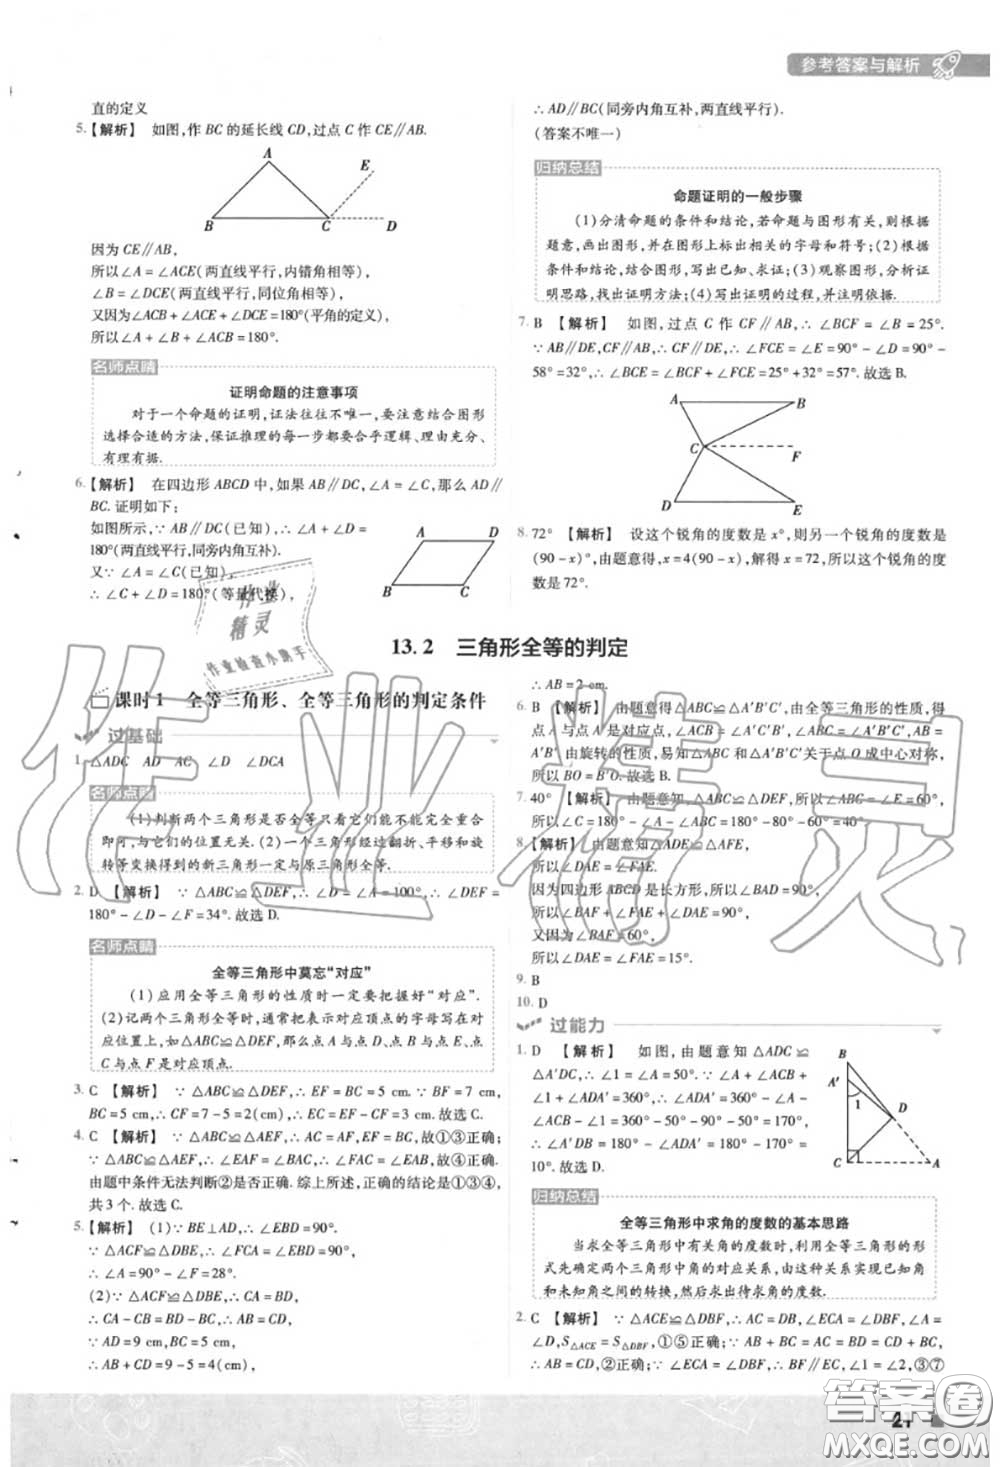 参考答案与解析
直的定义
5.【解析】 如图,作 BC 的延长线 CD,过点 C 作 CE∥AB.
A
E
B
C
D
因为 CE∥AB,
所以∠A=∠ACE(两直线平行,内错角相等),
∠B=∠DCE(两直线平行,同位角相等),
又因为∠ACB+∠ACE+∠DCE=180°(平角的定义),
所以∠A+∠B+∠ACB=180°.
名师点睛
证明命题的注意事项
对于一个命题的证明,证法往往不唯一,要注意结合图形
选择合适的方法,保证推理的每一步都要合乎逻辑、理由充分、
有理有据.
6.【解析】 在四边形 ABCD 中,如果 AB∥DC,∠A=∠C,那么 AD∥
BC.证明如下:
如图所示,∵AB∥DC(已知),∴∠A+∠D=
180°(两直线平行,同旁内角互补).
又∵∠A=∠C(已知),
∴∠C+∠D=180°(等量代换),
A
D
B
C
∴AD∥BC(同旁内角互补,两直线平行).
(答案不唯一)
归纳总结
命题证明的一般步骤
(1)分清命题的条件和结论,若命题与图形有关,则根据
题意,画出图形,并在图形上标出相关的字母和符号;(2)根据
条件和结论,结合图形,写出已知、求证;(3)观察图形,分析证
明思路,找出证明方法;(4)写出证明的过程,并注明依据.
7. B 【解析】 如图,过点 C 作 CF∥AB,∴∠BCF=∠B=25°.
∵AB∥DE,CF∥AB,∴CF∥DE,∴∠FCE=∠E=90°-∠D=90°-
58°=32°,∴∠BCE=∠BCF+∠FCE=25°+32°=57°.故选 B.
A
B
C
F
D
E
8. 72° 【解析】 设这个锐角的度数是 x°,则另一个锐角的度数是
(90-x)°,由题意得,x=4(90-x),解得 x=72,所以这个锐角的度
数是72°.
13.2 三角形全等的判定
课时1 全等三角形、全等三角形的判定条件
过基础
1. △ADC AD AC ∠D ∠DCA
名师点睛
(1)判断两个三角形是否全等只看它们能不能完全重合
即可,与它们的位置无关.(2)一个三角形经过翻折、平移和旋
转等变换得到的新三角形与原三角形全等.
2. D 【解析】 ∵△ABC≌△DEF,∴∠D=∠A=100°,∴∠E=
180°-∠D-∠F=34°.故选 D.
名师点睛
全等三角形中莫忘“对应”
(1)应用全等三角形的性质时一定要把握好“对应”.
(2)记两个三角形全等时,通常把表示对应顶点的字母写在对
应位置上,如△ABC≌△DEF,那么点 A 与点 D,点 B 与点 E,
点 C 与点 F 是对应顶点.
3. C 【解析】 ∵△ABC≌△DEF,∴EF=BC=5 cm.∵EF=7 cm,
BC=5 cm,∴CF=7-5=2(cm),∴EC=EF-CF=3 cm.故选 C.
4. C 【解析】 ∵△ABC≌△AEF,∴AC=AF,EF=BC,故①③正确;
∵△ABC≌△AEF,∴∠EAF=∠BAC,∴∠FAC=∠EAB,故④正确.
由题中条件无法判断②是否正确.综上所述,正确的结论是①③④,
共3个.故选 C.
5.【解析】 (1)∵BE⊥AD,∴∠EBD=90°.
∵△ACF≌△DBE,∴∠FCA=∠EBD=90°,
∴∠A=90°-∠F=28°.
(2)∵△ACF≌△DBE,∴CA=BD,
∴CA-CB=BD-BC,∴AB=CD.
∵AD=9 cm,BC=5 cm,
∴AB+CD=9-5=4(cm),
∴AB=2 cm.
6. B 【解析】 由题意得△ABC≌△A'B'C',由全等三角形的性质,得
点 A 与点 A'是对应点,∠ACB=∠A'C'B',∠ABC=∠A'B'C',AB=
A'B'.由旋转的性质,易知△ABC 和△A'B'C'关于点 O 成中心对称,
所以 BO=B'O.故选 B.
7. 40° 【解析】 由题意知,△ABC≌△DEF,所以∠ABC=∠E=60°,
所以∠C=180°-∠A-∠ABC=180°-80°-60°=40°.
8.【解析】 由题意知△ADE≌△AFE,
所以∠DAE=∠FAE.
因为四边形 ABCD 是长方形,所以∠BAD=90°,
所以∠BAF+∠FAE+∠DAE=90°,
又因为∠BAF=60°,
所以∠DAE=∠FAE=15°.
9. B
10. D
过能力
1. D 【解析】 如图,由题意知△ADC≌
△A'DC,∴∠1=∠A=50°.∵∠ACB+
∠1+∠ADA'+∠A=360°,∴∠ADA'=360°-
∠ACB-∠1-∠A=360°-90°-50°-50°=170°,
∴∠A'DB=180°-∠ADA'=180°-170°=
10°.故选 D.
B
A'
1
D
C
A
归纳总结
全等三角形中求角的度数的基本思路
当求全等三角形中有关角的度数时,利用全等三角形的形
式先确定两个三角形中角的对应关系,由这种关系实现已知角
和未知角之间的转换,然后求出待求角的度数.
2. C 【解析】 ∵△ACE≌△DBF,∴AC=DB,∠ECA=∠DBF,∠A=
∠D,S△ACE=S△DBF,①⑤正确;∵AB+BC=AC=BD=CD+BC,
∴AB=CD,②正确;∵∠ECA=∠DBF,∴BF∥EC,∠1=∠2,③⑦
作业精灵
作业
精灵
作业检查小助手
答案圈
MXQE.COM
21